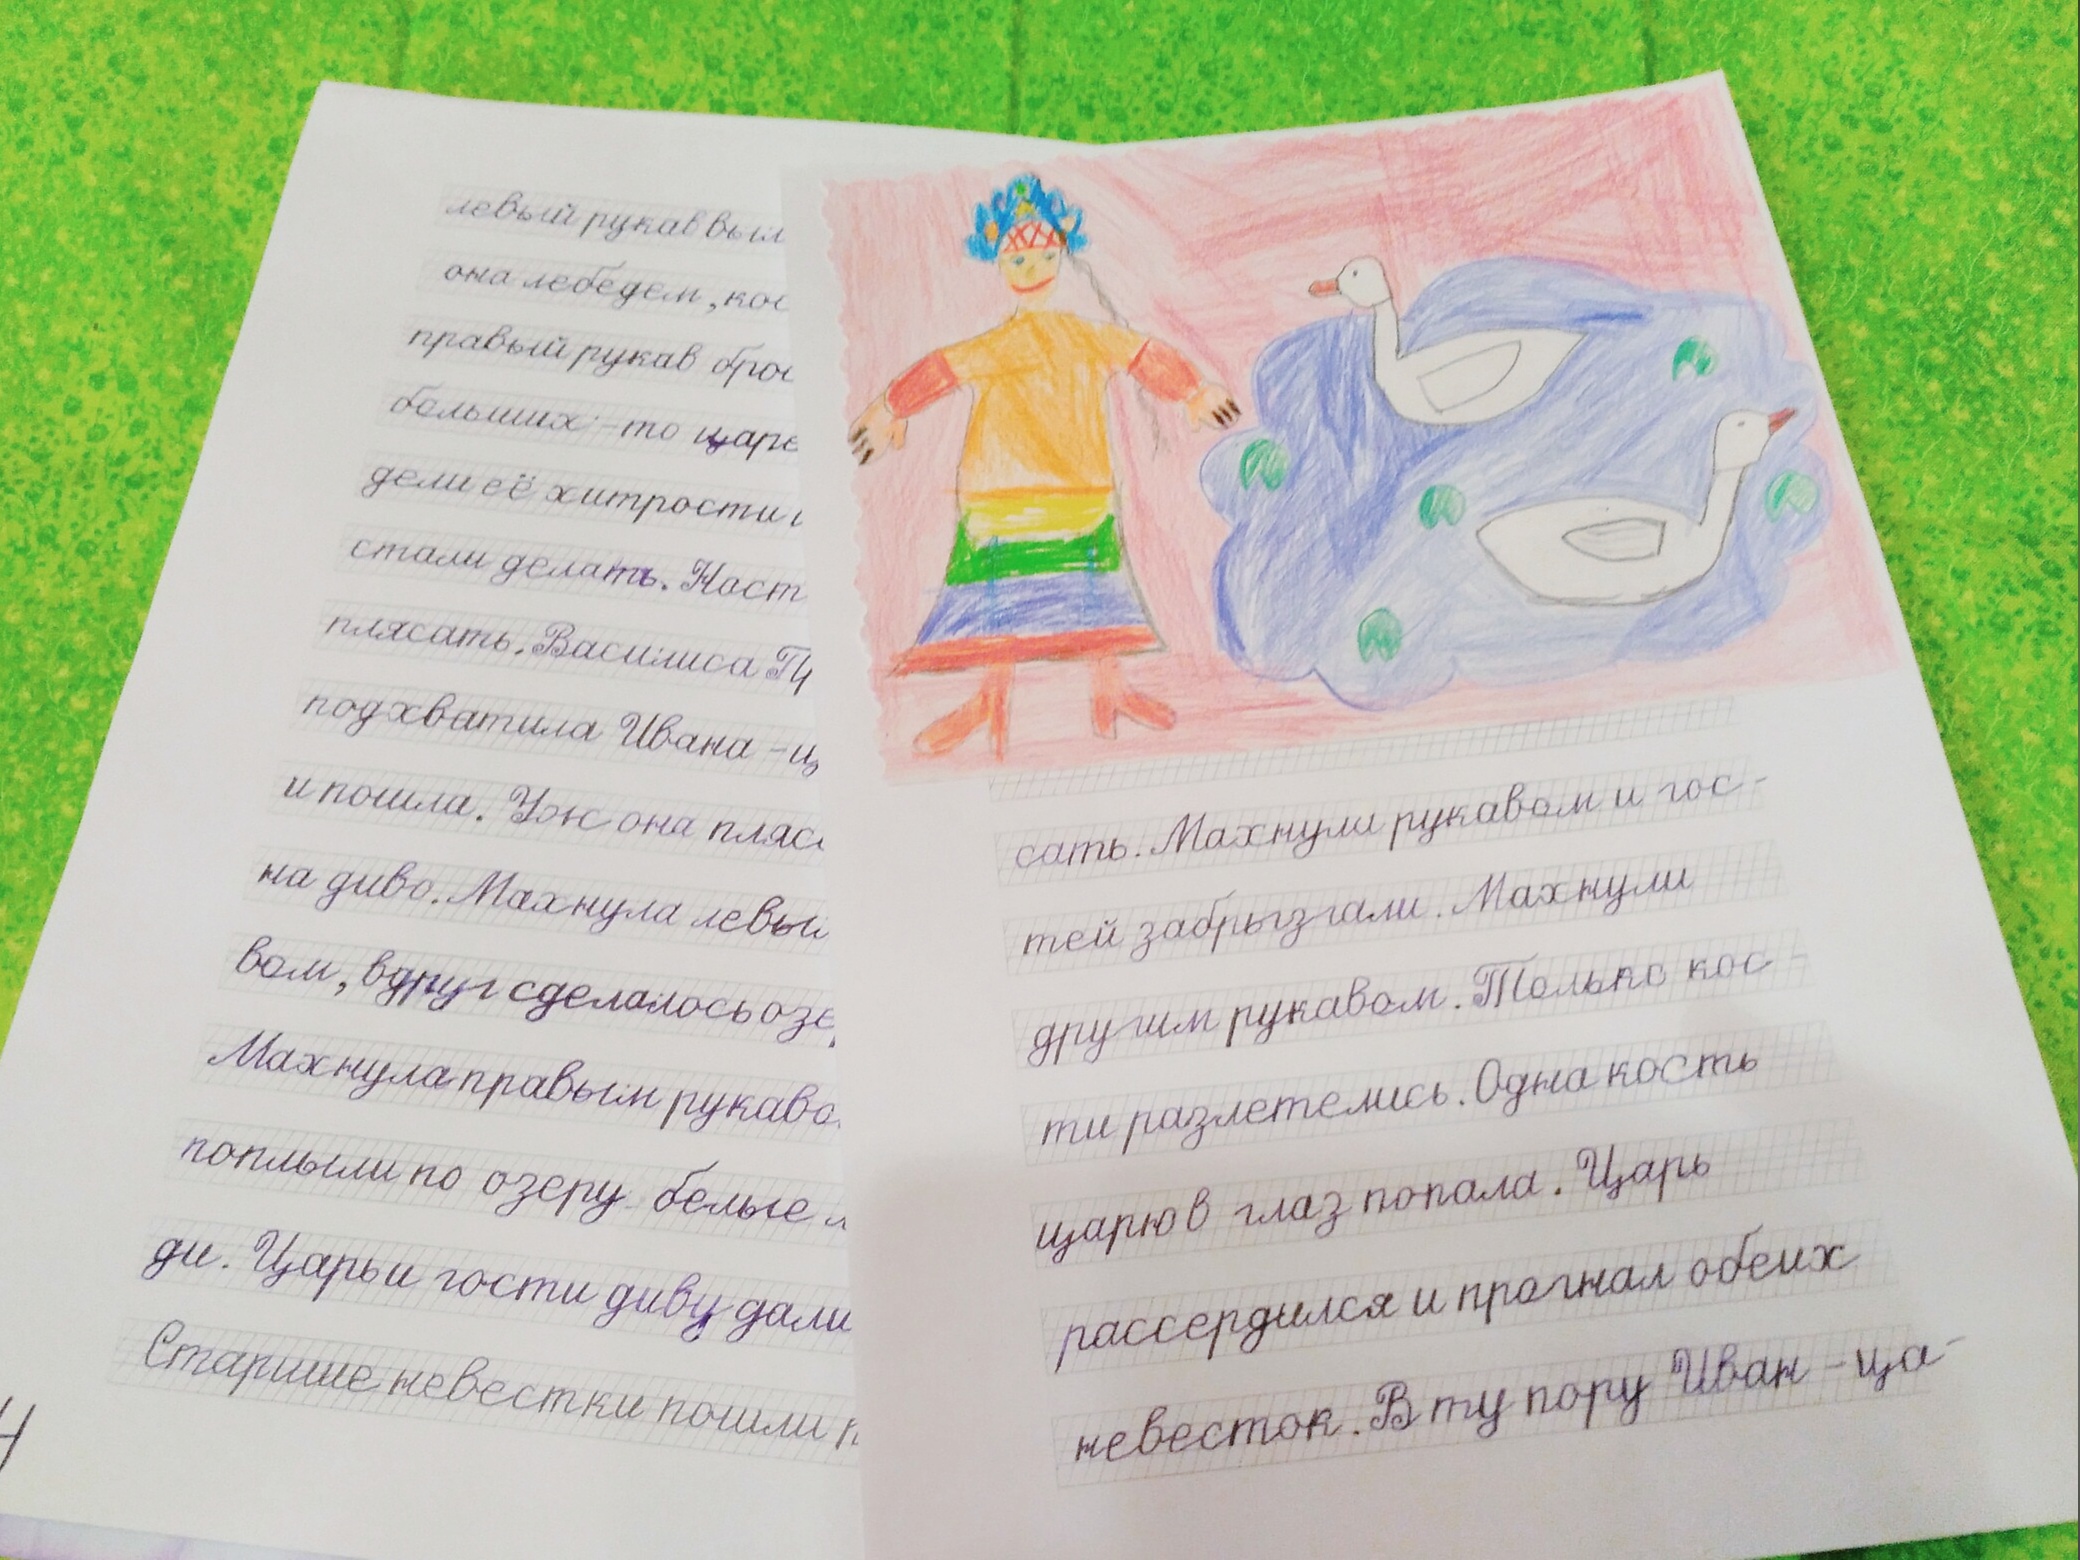 левый рукав выл
она лебедем, кос
правый рукав брос
больших-то царе
дели её хитрости и
стали делать. Наст
плясать. Василиса Пр
подхватила Ивана-ц
и пошла. Уж она пляса
на диво. Махнула левы
вом, вдруг сделалось озе
Махнула правым рукаво
поплыли по озеру белые л
ди. Царь и гости диву дали
Старшие невестки пошли п
4
сать. Махнули рукавом и гос-
тей забрызгали. Махнули
другим рукавом. Только кос-
ти разлетелись. Одна кость
царю в глаз попала. Царь
рассердился и прогнал обеих
невесток. В ту пору Иван-ца-